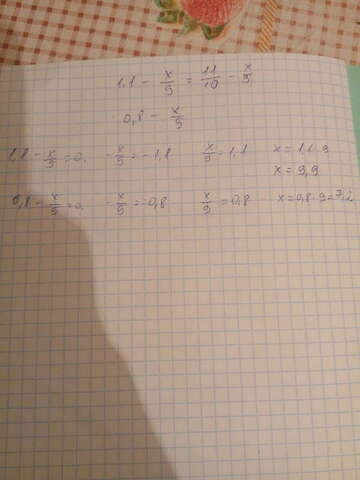 1,1 - x/9 = 11/10 - x/9
0,8 - x/9
1,8 - x/9 = 0, - x/9 = -1,8 x/9 - 1,1 x = 1,1·9
x = 9,9
0,8 - x/9 = 0, - x/9 = -0,8 x/9 = 0,8 x = 0,8·9 = 7,2